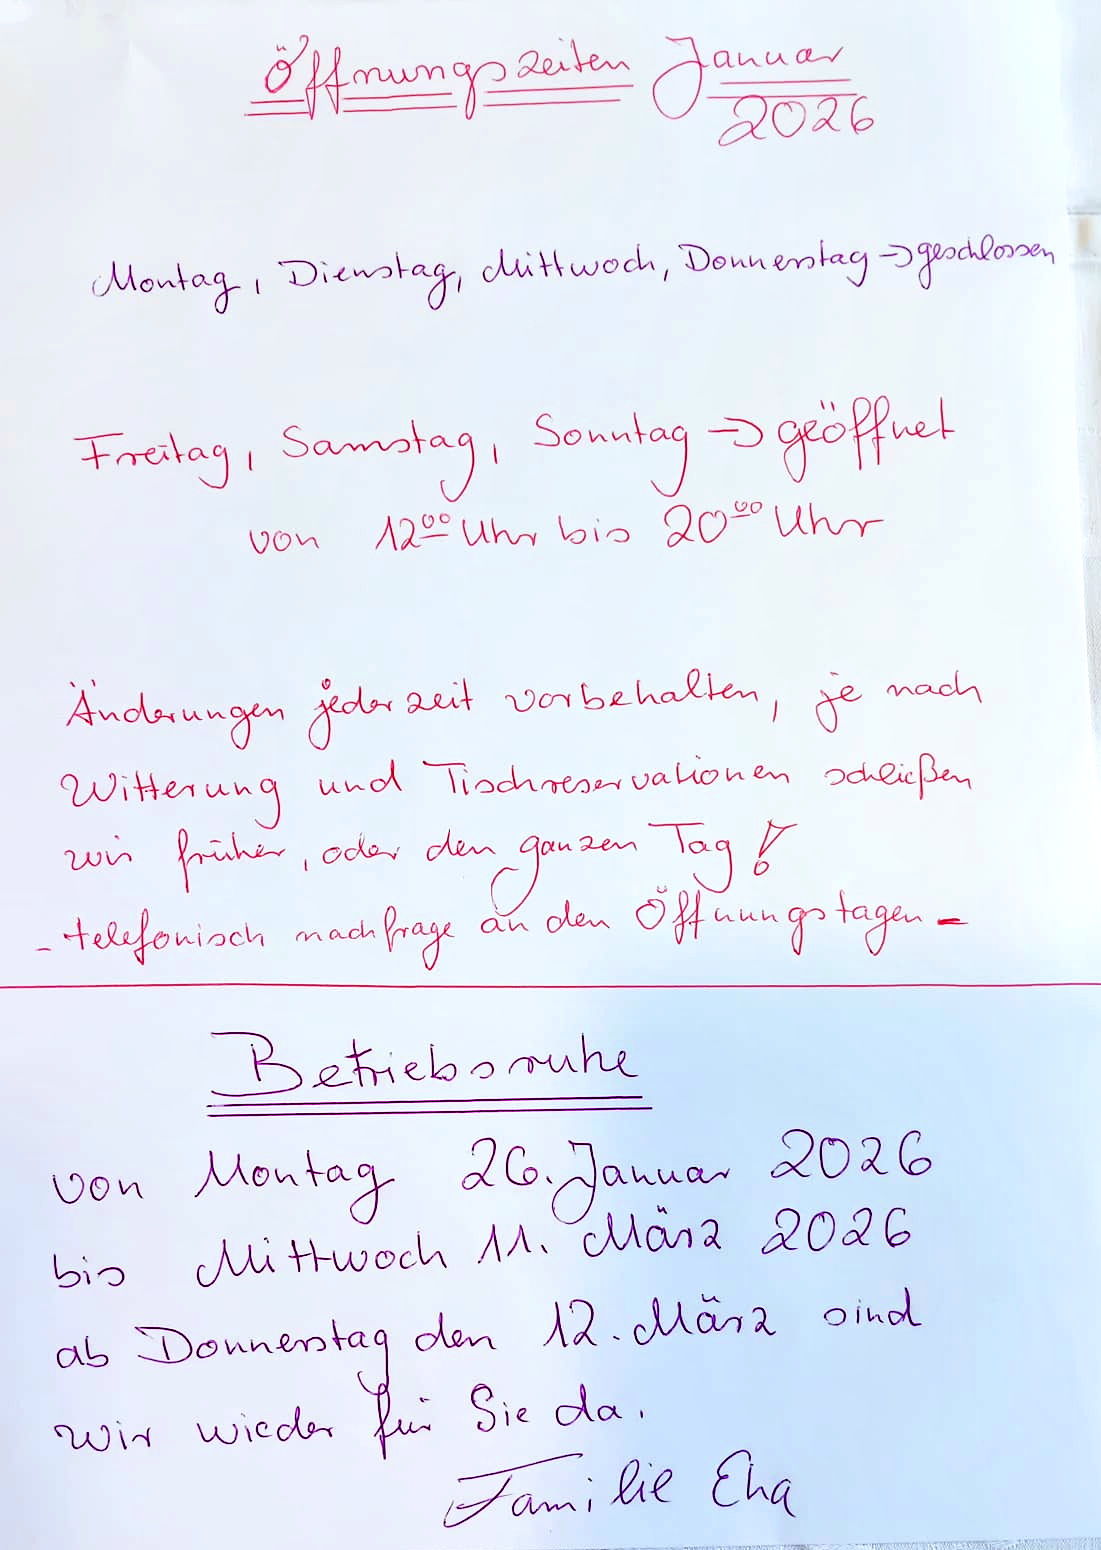 Öffnungszeiten Januar
2026
Montag, Dienstag, Mittwoch, Donnerstag → geschlossen
Freitag, Samstag, Sonntag → geöffnet
von 12⁰⁰ Uhr bis 20⁰⁰ Uhr
Änderungen jederzeit vorbehalten, je nach
Witterung und Tischreservationen schließen
wir früher, oder den ganzen Tag!
- telefonisch nachfrage an den Öffnungstagen -
Betriebsruhe
von Montag 26. Januar 2026
bis Mittwoch 11. März 2026
ab Donnerstag den 12. März sind
wir wieder für Sie da.
Familie